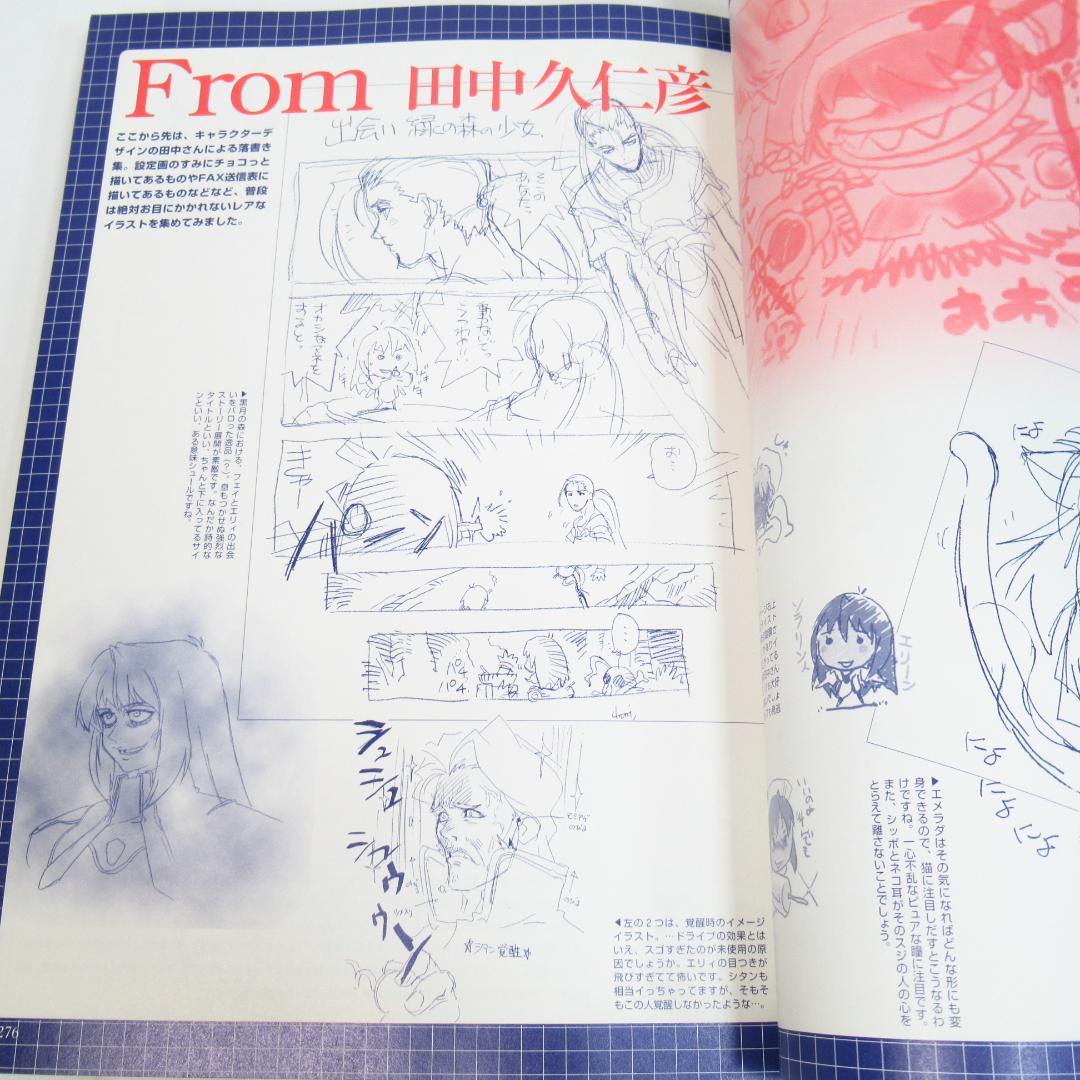 From 田中久仁彦
ここから先は、キャラクターデ
ザインの田中さんによる落書き
集。設定画のすみにチョコっと
描いてあるものやFAX送信表に
描いてあるものなどなど、普段
は絶対お目にかかれないレアな
イラストを集めてみました。
出会い 緑の森の少女
そこの
あなたっ
動かないでっ
うつわよ!!
オカシなマネを
すると。
お…
きゃー
▶黒月の森における、フェイとエリィの出会
いをパロった逸品(?)。息もつかせぬ強烈な
ストーリー展開が素敵です。なんだか詩的な
タイトルといい、ちゃんと下に入ってるサイ
ンといい、ある意味シュールですね。
シュ
シュウウゥー
☆シタン覚醒☆
◀左の2つは、覚醒時のイメージ
イラスト。…ドライブの効果とは
いえ、スゴすぎたのが未使用の原
因でしょうか。エリィの目つきが
飛びすぎてて怖いです。シタンも
相当イっちゃってますが、そもそ
もこの人覚醒しなかったような…。
276
エリーン
にょ
にょ
にょ
にょ
▶エメラダはその気になればどんな形にも変
身できるので、猫に注目しだすとこうなるわ
けですね。一心不乱なピュアな瞳に注目です。
また、シッポとネコ耳がそのスジの人の心を
とらえて離さないことでしょう。